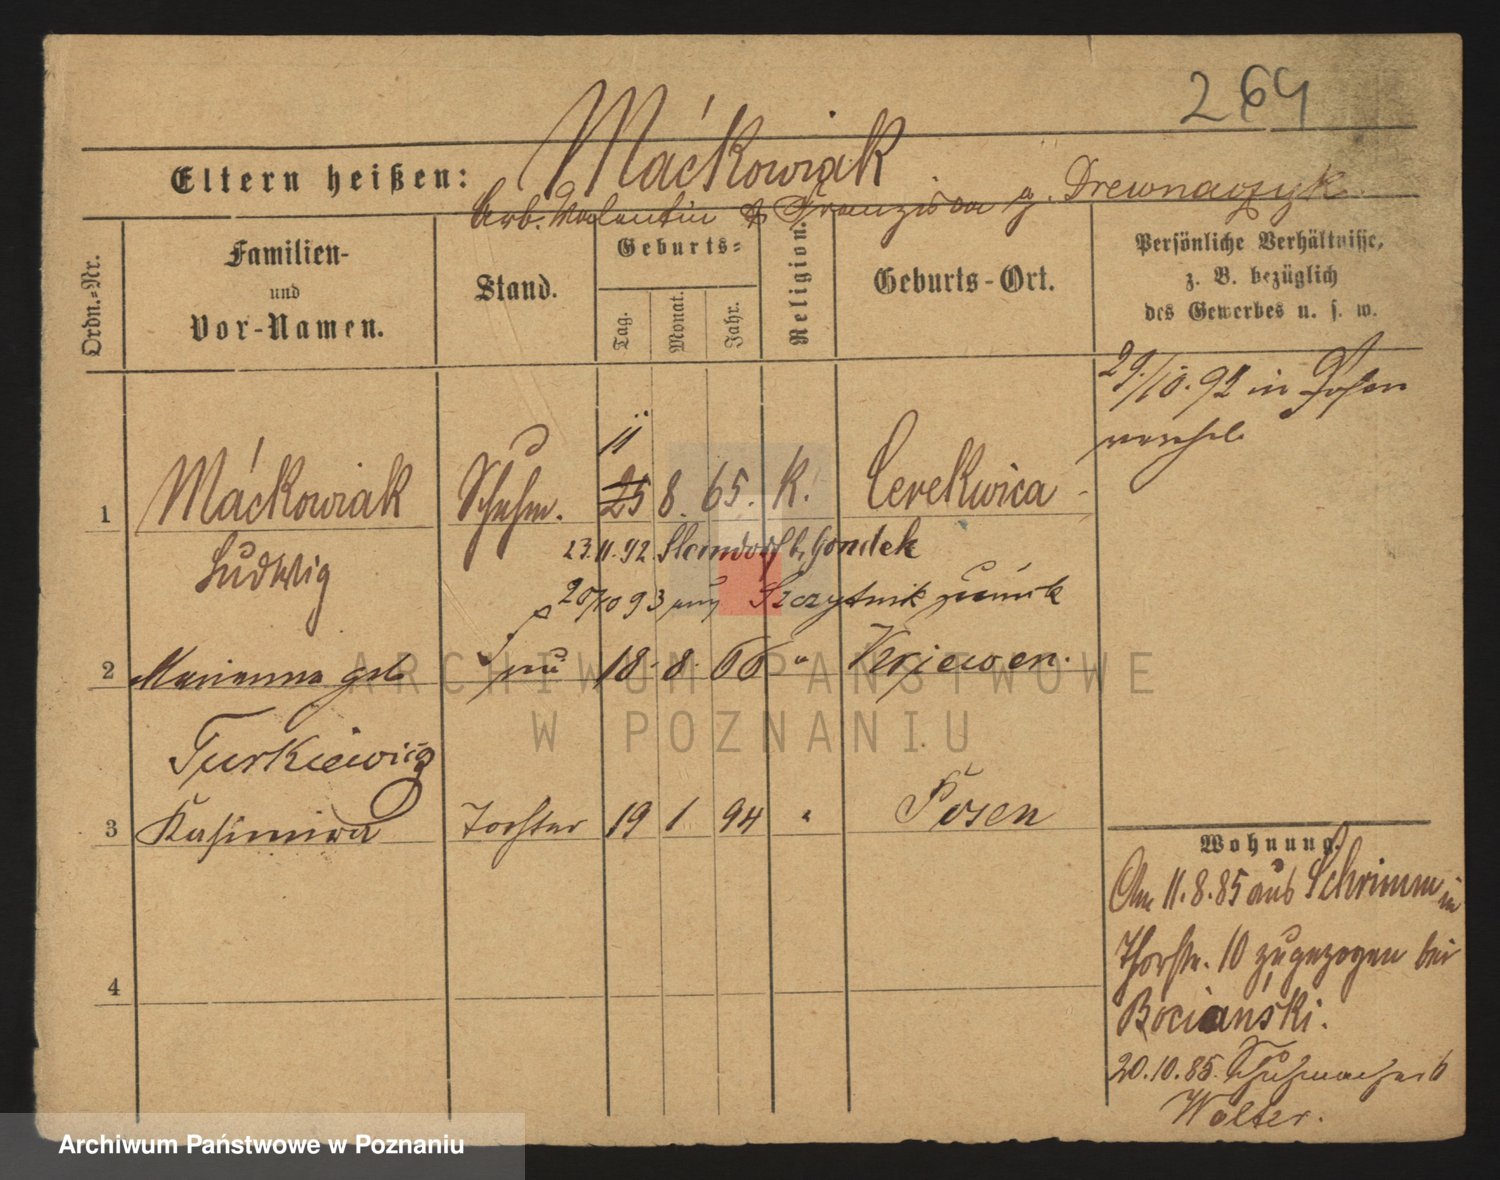 264
Máckowiak
Eltern heißen:
Arb. Valentin & Franziska g. Drewnaczyk
Ordn.-Nr.
Familien-
und
Vor-Namen.
Stand.
Geburts-
Tag.
Monat.
Jahr.
Religion.
Geburts-Ort.
Persönliche Verhältnisse,
z. B. bezüglich
des Gewerbes u. s. w.
29./10. 92 in Posen
verehel.
11
1 Máckowiak Schuhm. 25 8. 65. K. Cerekwica
Ludwig
23.11.92. b. Gondek
20/10 93 aus Szczytnik zurück
2 Marianna geb. Frau 18. 8. 66 " Kriewen.
Turkiewicz
3 Kasimira Tochter 19 1 94 " Posen
4
Wohnung.
Am 11.8.85 aus Schrimm in
Thorstr. 10 zugezogen bei
Bociański.
20.10.85. Schuhmacher b
Wolter.
ARCHIWUM PAŃSTWOWE
W POZNANIU
Archiwum Państwowe w Poznaniu